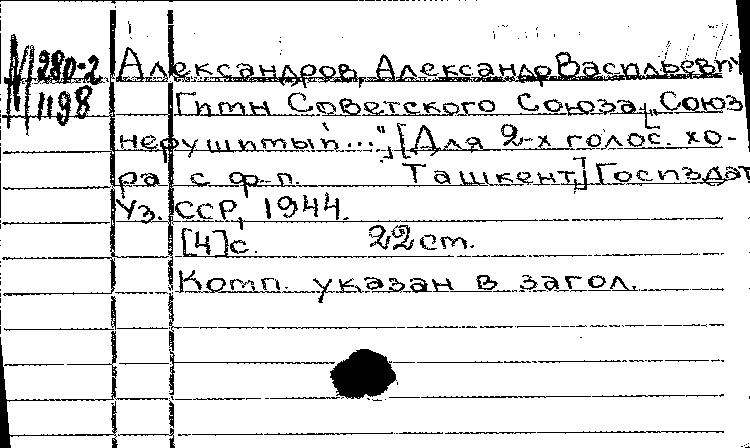 М 280-2
1198
Александров, Александр Васильевич
Гимн Советского Союза. [„Союз
нерушимый...“,] [Для 2-х голос. хо-
ра с ф-п. Ташкент,] Госиздат
Уз. ССР, 1944.
[4]с. 22 см.
Комп. указан в загол.